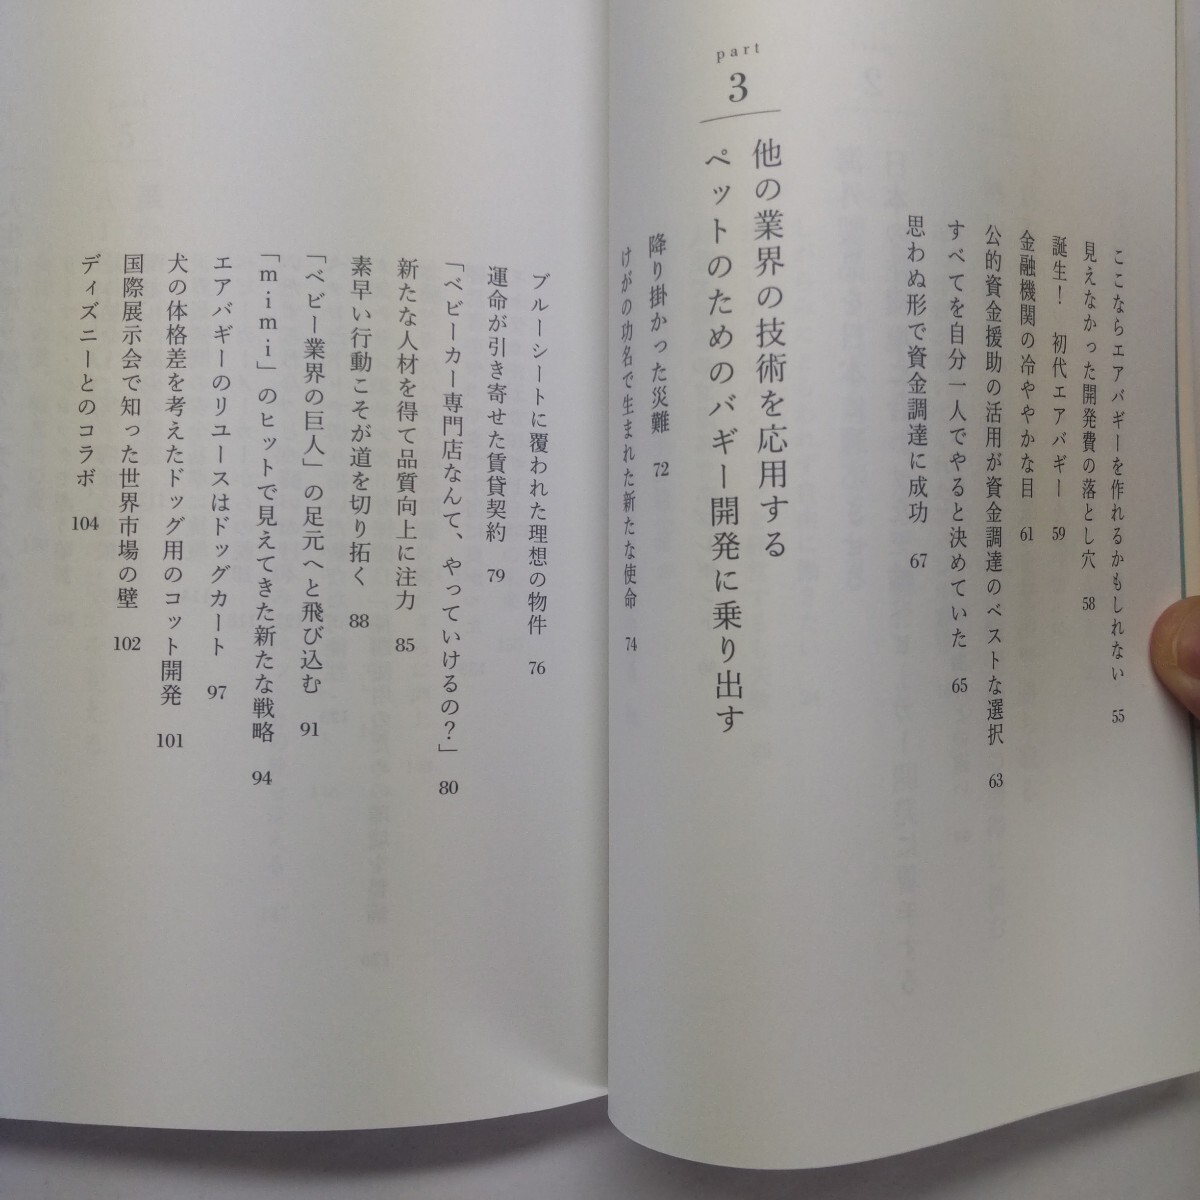 ここならエアバギーを作れるかもしれない 55
見えなかった開発費の落とし穴 58
誕生！ 初代エアバギー 59
金融機関の冷ややかな目 61
公的資金援助の活用が資金調達のベストな選択 63
すべてを自分一人でやると決めていた 65
思わぬ形で資金調達に成功 67
part
3
他の業界の技術を応用する
ペットのためのバギー開発に乗り出す
降り掛かった災難 72
けがの功名で生まれた新たな使命 74
ブルーシートに覆われた理想の物件 76
運命が引き寄せた賃貸契約 79
「ベビーカー専門店なんて、やっていけるの？」 80
新たな人材を得て品質向上に注力 85
素早い行動こそが道を切り拓く 88
「ベビー業界の巨人」の足元へと飛び込む 91
「mimi」のヒットで見えてきた新たな戦略 94
エアバギーのリユースはドッグカート 97
犬の体格差を考えたドッグ用のコット開発 101
国際展示会で知った世界市場の壁 102
ディズニーとのコラボ 104